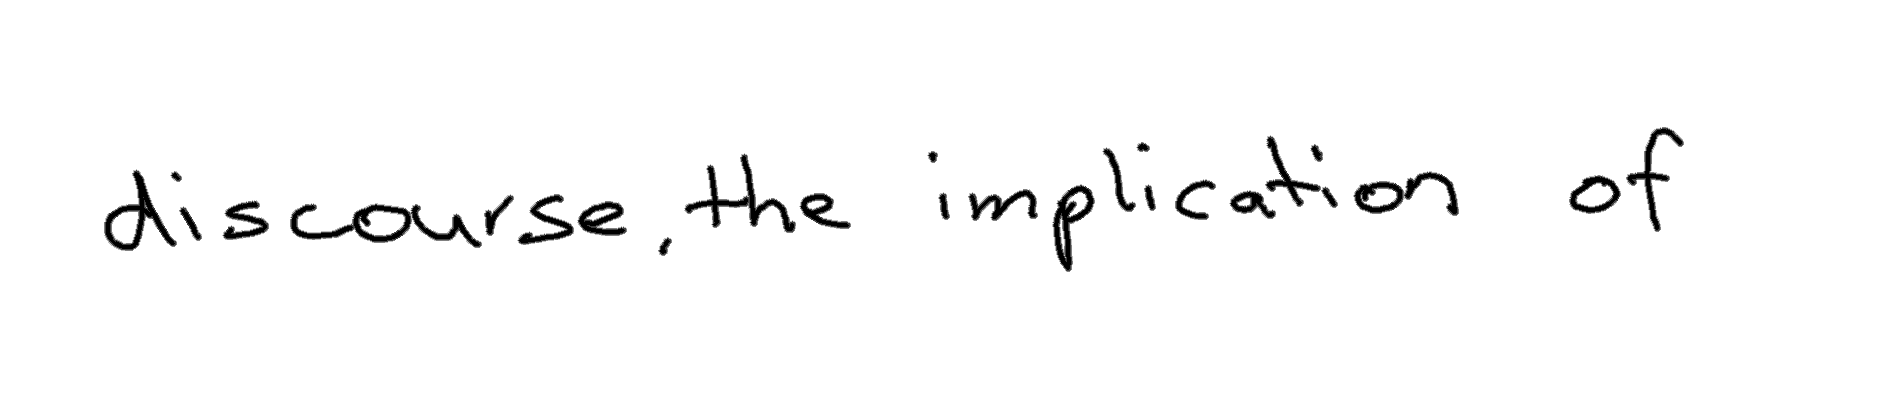 discourse, the implication of